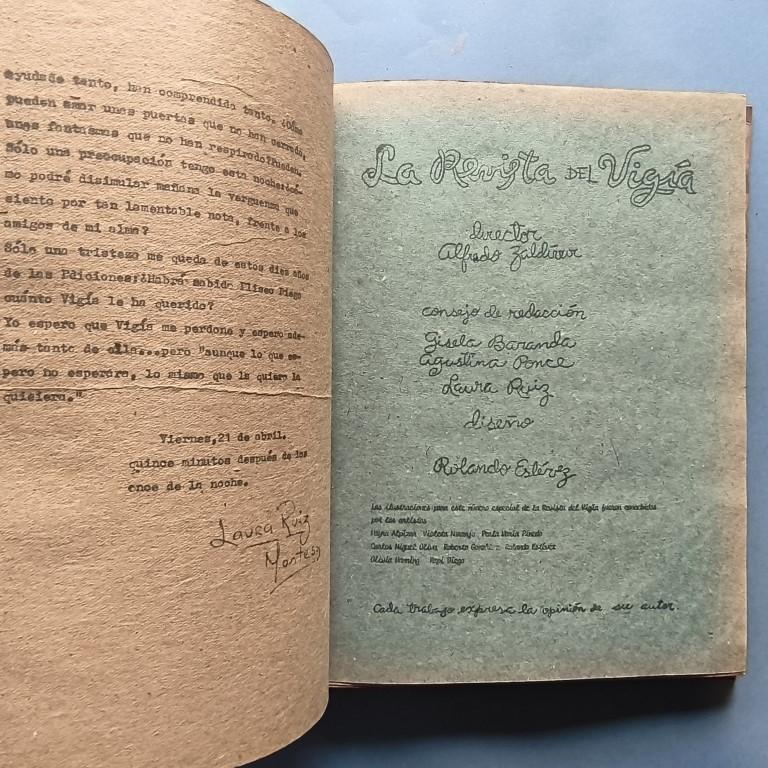 ayudado tanto, han comprendido tanto. ¿Cómo
pueden amar unas puertas que no han cerrado,
unos fantasmas que no han respirado? Pueden.
Sólo una preocupación tengo esta noche: ¿có-
mo podré disimular mañana la verguenza que
siento por tan lamentable nota, frente a los
amigos de mi alma?
Sólo una tristeza me queda de estos diez años
de las Ediciones: ¿Habrá sabido Eliseo Diego
cuánto Vigía le ha querido?
Yo espero que Vigía me perdone y espero ade-
más tanto de ella...pero "aunque lo que es-
pero no esperara, lo mismo que la quiero la
quisiera."
Viernes, 21 de abril.
quince minutos después de las
once de la noche.
Laura Ruiz
Montes
La Revista DEL Vigía
director
Alfredo Zaldívar
consejo de redacción
Gisela Baranda
Agustina Ponce
Laura Ruiz
diseño
Rolando Estévez
Las ilustraciones para este número especial de la Revista del Vigía fueron concebidas
por los artistas
Mayra Alpízar Violeta Naranjo Perla María Pinedo
Carlos Miguel Oliva Roberto Rolando Estévez
Rapi Diego
Cada trabajo expresa la opinión de su autor.